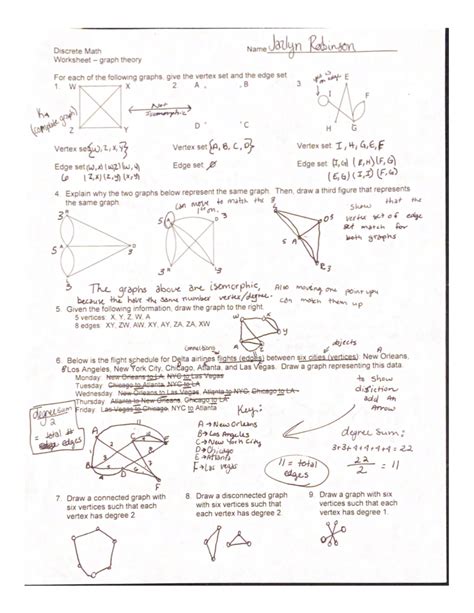 Discrete Math
Name Jazlyn Robinson
Worksheet – graph theory
For each of the following graphs, give the vertex set and the edge set
1. W X 2. A B 3. E
F
I
Not
Isomorphic
K4
(complete graph)
Z Y D C H G
Vertex set {W, Z, X, Y} Vertex set {A, B, C, D} Vertex set I, H, G, E, F
Edge set (W,X) (W,Z) (W,Y) Edge set ∅ Edge set (I,G) (E,H) (F,G)
6 (Z,X) (Z,Y) (X,Y) (E,G) (I,I) (F,G)
4. Explain why the two graphs below represent the same graph. Then, draw a third figure that represents
the same graph.
can move to match the
1st on.
show that the
vertex set of edge
set match for
both graphs
The graphs above are isomorphic,
because the have the same number vertex/degree.
Also moving one point you
can match them up
5. Given the following information, draw the graph to the right.
5 vertices: X, Y, Z, W, A
8 edges: XY, ZW, AW, XY, AY, ZA, ZA, XW
connections
objects
6. Below is the flight schedule for Delta airlines flights (edges) between six cities (vertices): New Orleans,
Los Angeles, New York City, Chicago, Atlanta, and Las Vegas. Draw a graph representing this data.
Monday New Orleans to LA NYC to Las Vegas
Tuesday Chicago to Atlanta NYC to LA
Wednesday New Orleans to Las Vegas Atlanta to NYC
Thursday Atlanta to New Orleans, Chicago to Atlanta
Friday Las Vegas to Chicago, NYC to Atlanta
to show
add an
Arrow
degree sum
2
= total #
edges
Key:
A → New Orleans
B → Los Angeles
C → New York City
D → Chicago
E → Atlanta
F → Las Vegas
11 = total
edges
degree Sum:
3+3+4+4+4+4 = 22
22
2
= 11
7. Draw a connected graph with
six vertices such that each
vertex has degree 2
8. Draw a disconnected graph
with six vertices such that
each vertex has degree 2.
9. Draw a graph with six
vertices such that each
vertex has degree 1.